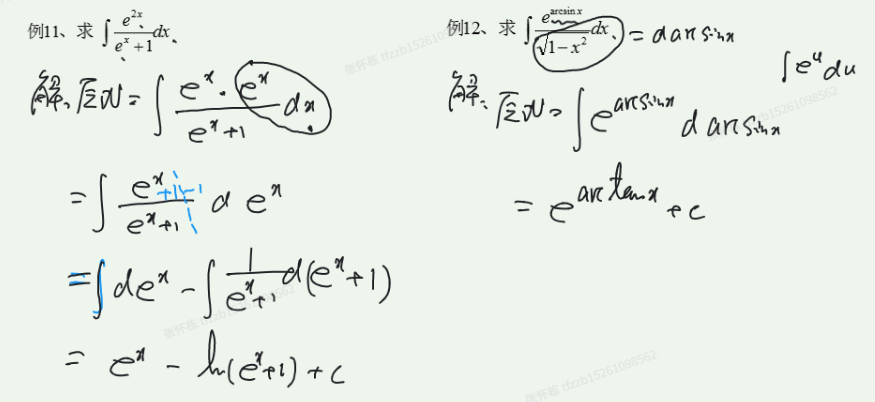 例11、求 ∫ e^{2x}/(e^x+1) dx、
解、原式 = ∫ (e^x · e^x)/(e^x+1) dx
= ∫ (e^x +1-1)/(e^x+1) d e^x
= ∫ de^x - ∫ 1/(e^x+1) d(e^x+1)
= e^x - ln(e^x+1) + c
例12、求 ∫ e^{arcsin x}/√(1-x²) dx、 = d arcsinx
∫ e^u du
解、原式 = ∫ e^{arcsinx} d arcsinx
= e^{arctanx} + c
张怀栋 tfzzb15261098562